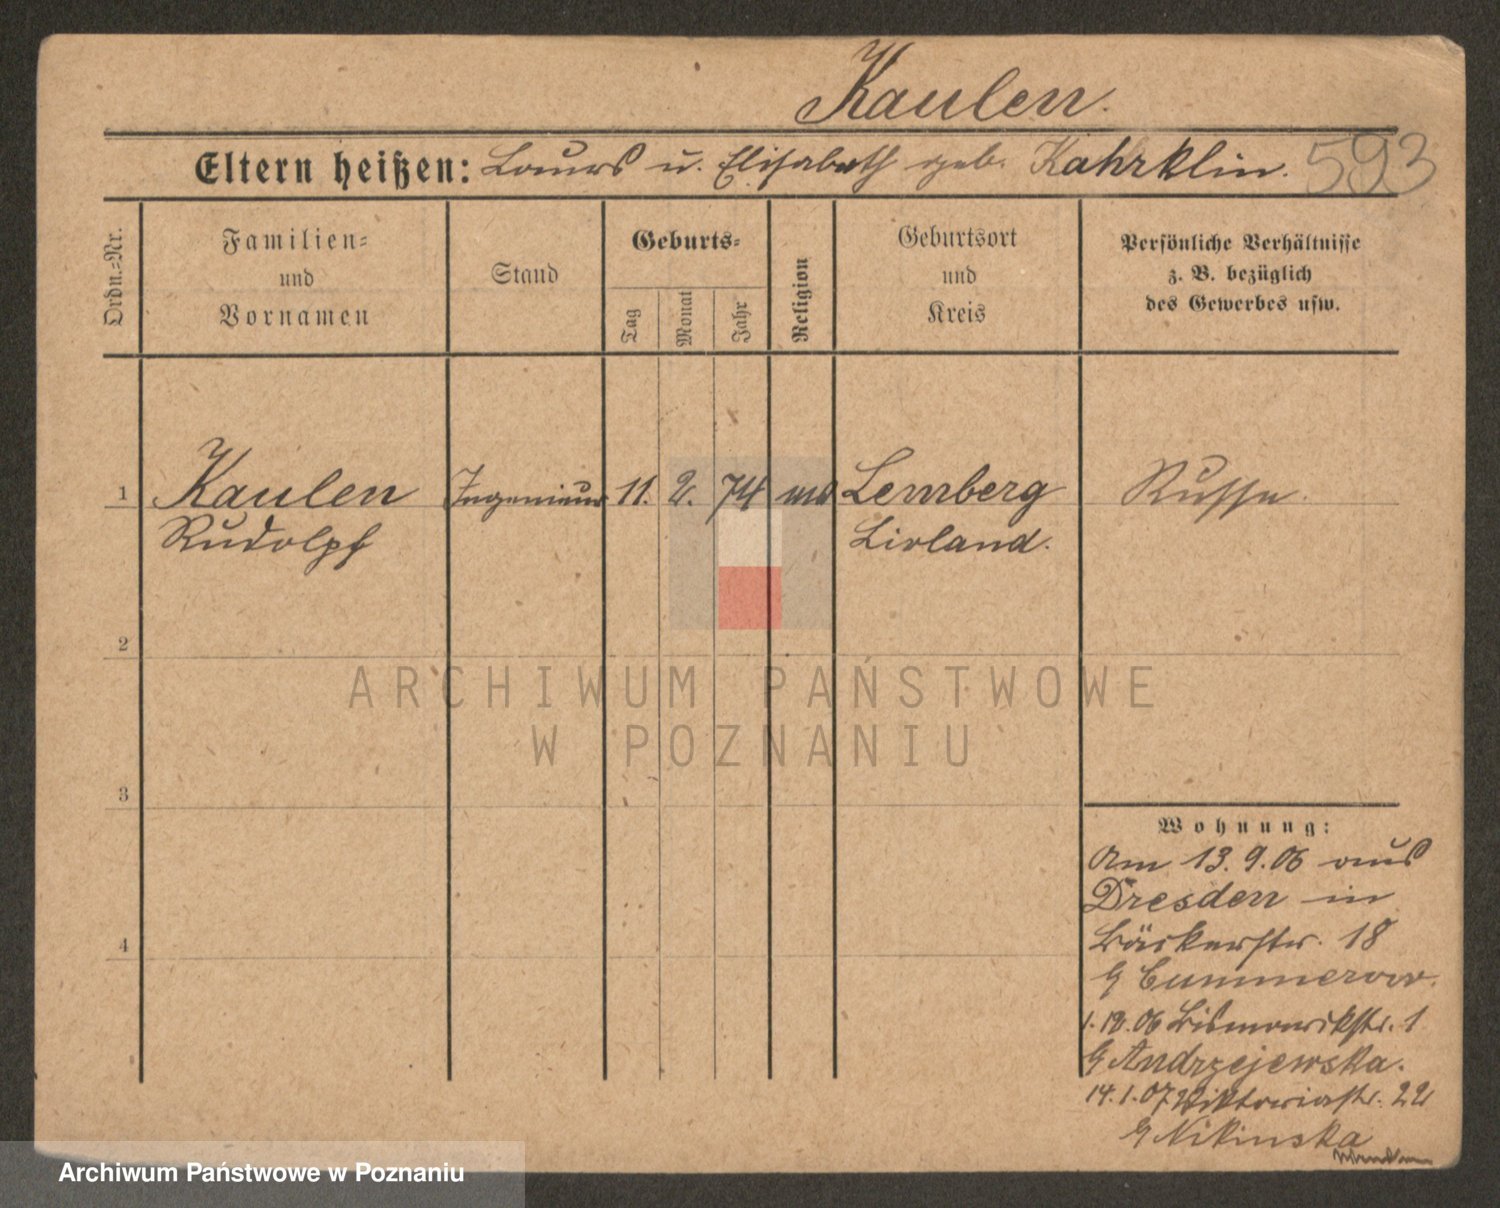 Kaulen.
Eltern heißen: Louis u. Elisabeth geb. Kahrklin. 593
Ordn.-Nr.
Familien-
und
Vornamen
Stand
Geburts-
Tag
Monat
Jahr
Religion
Geburtsort
und
Kreis
Persönliche Verhältnisse
z. B. bezüglich
des Gewerbes usw.
1 Kaulen Ingenieur 11. 2. 74 Lemberg Russe.
Rudolph Livland.
2
3
4
Wohnung:
Am 13.9.06 aus
Dresden in
Bäckerstr. 18
b Cummerow.
1.12.06 Bismarckstr. 1
b Andrzejewska.
14.1.07 Viktoriastr. 22
b Nikinska
ARCHIWUM PAŃSTWOWE
W POZNANIU
Archiwum Państwowe w Poznaniu